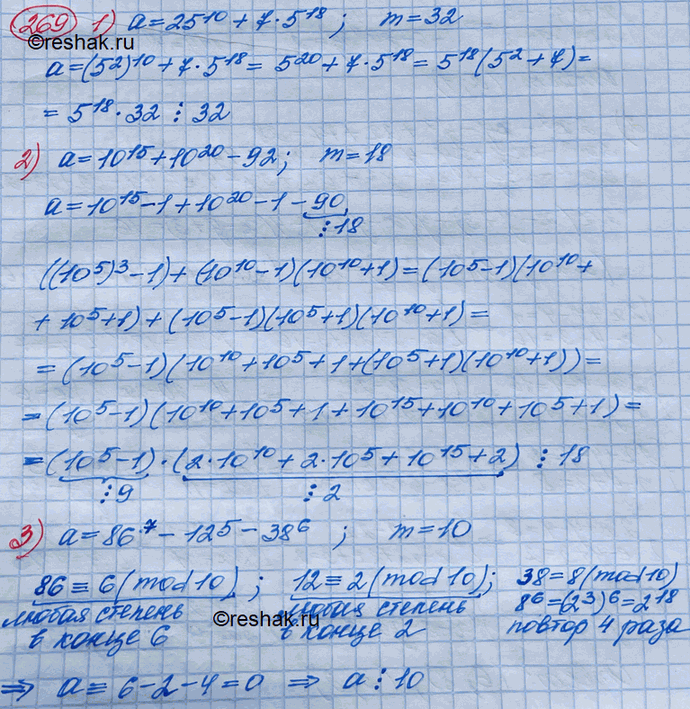 269 1) a = 25¹⁰ + 7 · 5¹⁸ ; m = 32
©reshak.ru
a = (5²)¹⁰ + 7 · 5¹⁸ = 5²⁰ + 7 · 5¹⁸ = 5¹⁸(5² + 7) =
= 5¹⁸ · 32 ⋮ 32
2) a = 10¹⁵ + 10²⁰ − 92; m = 18
a = 10¹⁵ − 1 + 10²⁰ − 1 − 90
⋮ 18
((10⁵)³ − 1) + (10¹⁰ − 1)(10¹⁰ + 1) = (10⁵ − 1)(10¹⁰ +
+ 10⁵ + 1) + (10⁵ − 1)(10⁵ + 1)(10¹⁰ + 1) =
= (10⁵ − 1)(10¹⁰ + 10⁵ + 1 + (10⁵ + 1)(10¹⁰ + 1)) =
= (10⁵ − 1)(10¹⁰ + 10⁵ + 1 + 10¹⁵ + 10¹⁰ + 10⁵ + 1) =
= (10⁵ − 1) · (2 · 10¹⁰ + 2 · 10⁵ + 10¹⁵ + 2) ⋮ 18
⋮ 9 ⋮ 2
3) a = 86⁷ − 12⁵ − 38⁶ ; m = 10
86 ≡ 6 (mod 10) ; 12 ≡ 2 (mod 10); 38 = 8 (mod 10)
любая степень любая степень 8⁶ = (2³)⁶ = 2¹⁸
в конце 6 в конце 2 повтор 4 раза
©reshak.ru
⇒ a ≡ 6 − 2 − 4 = 0 ⇒ a ⋮ 10